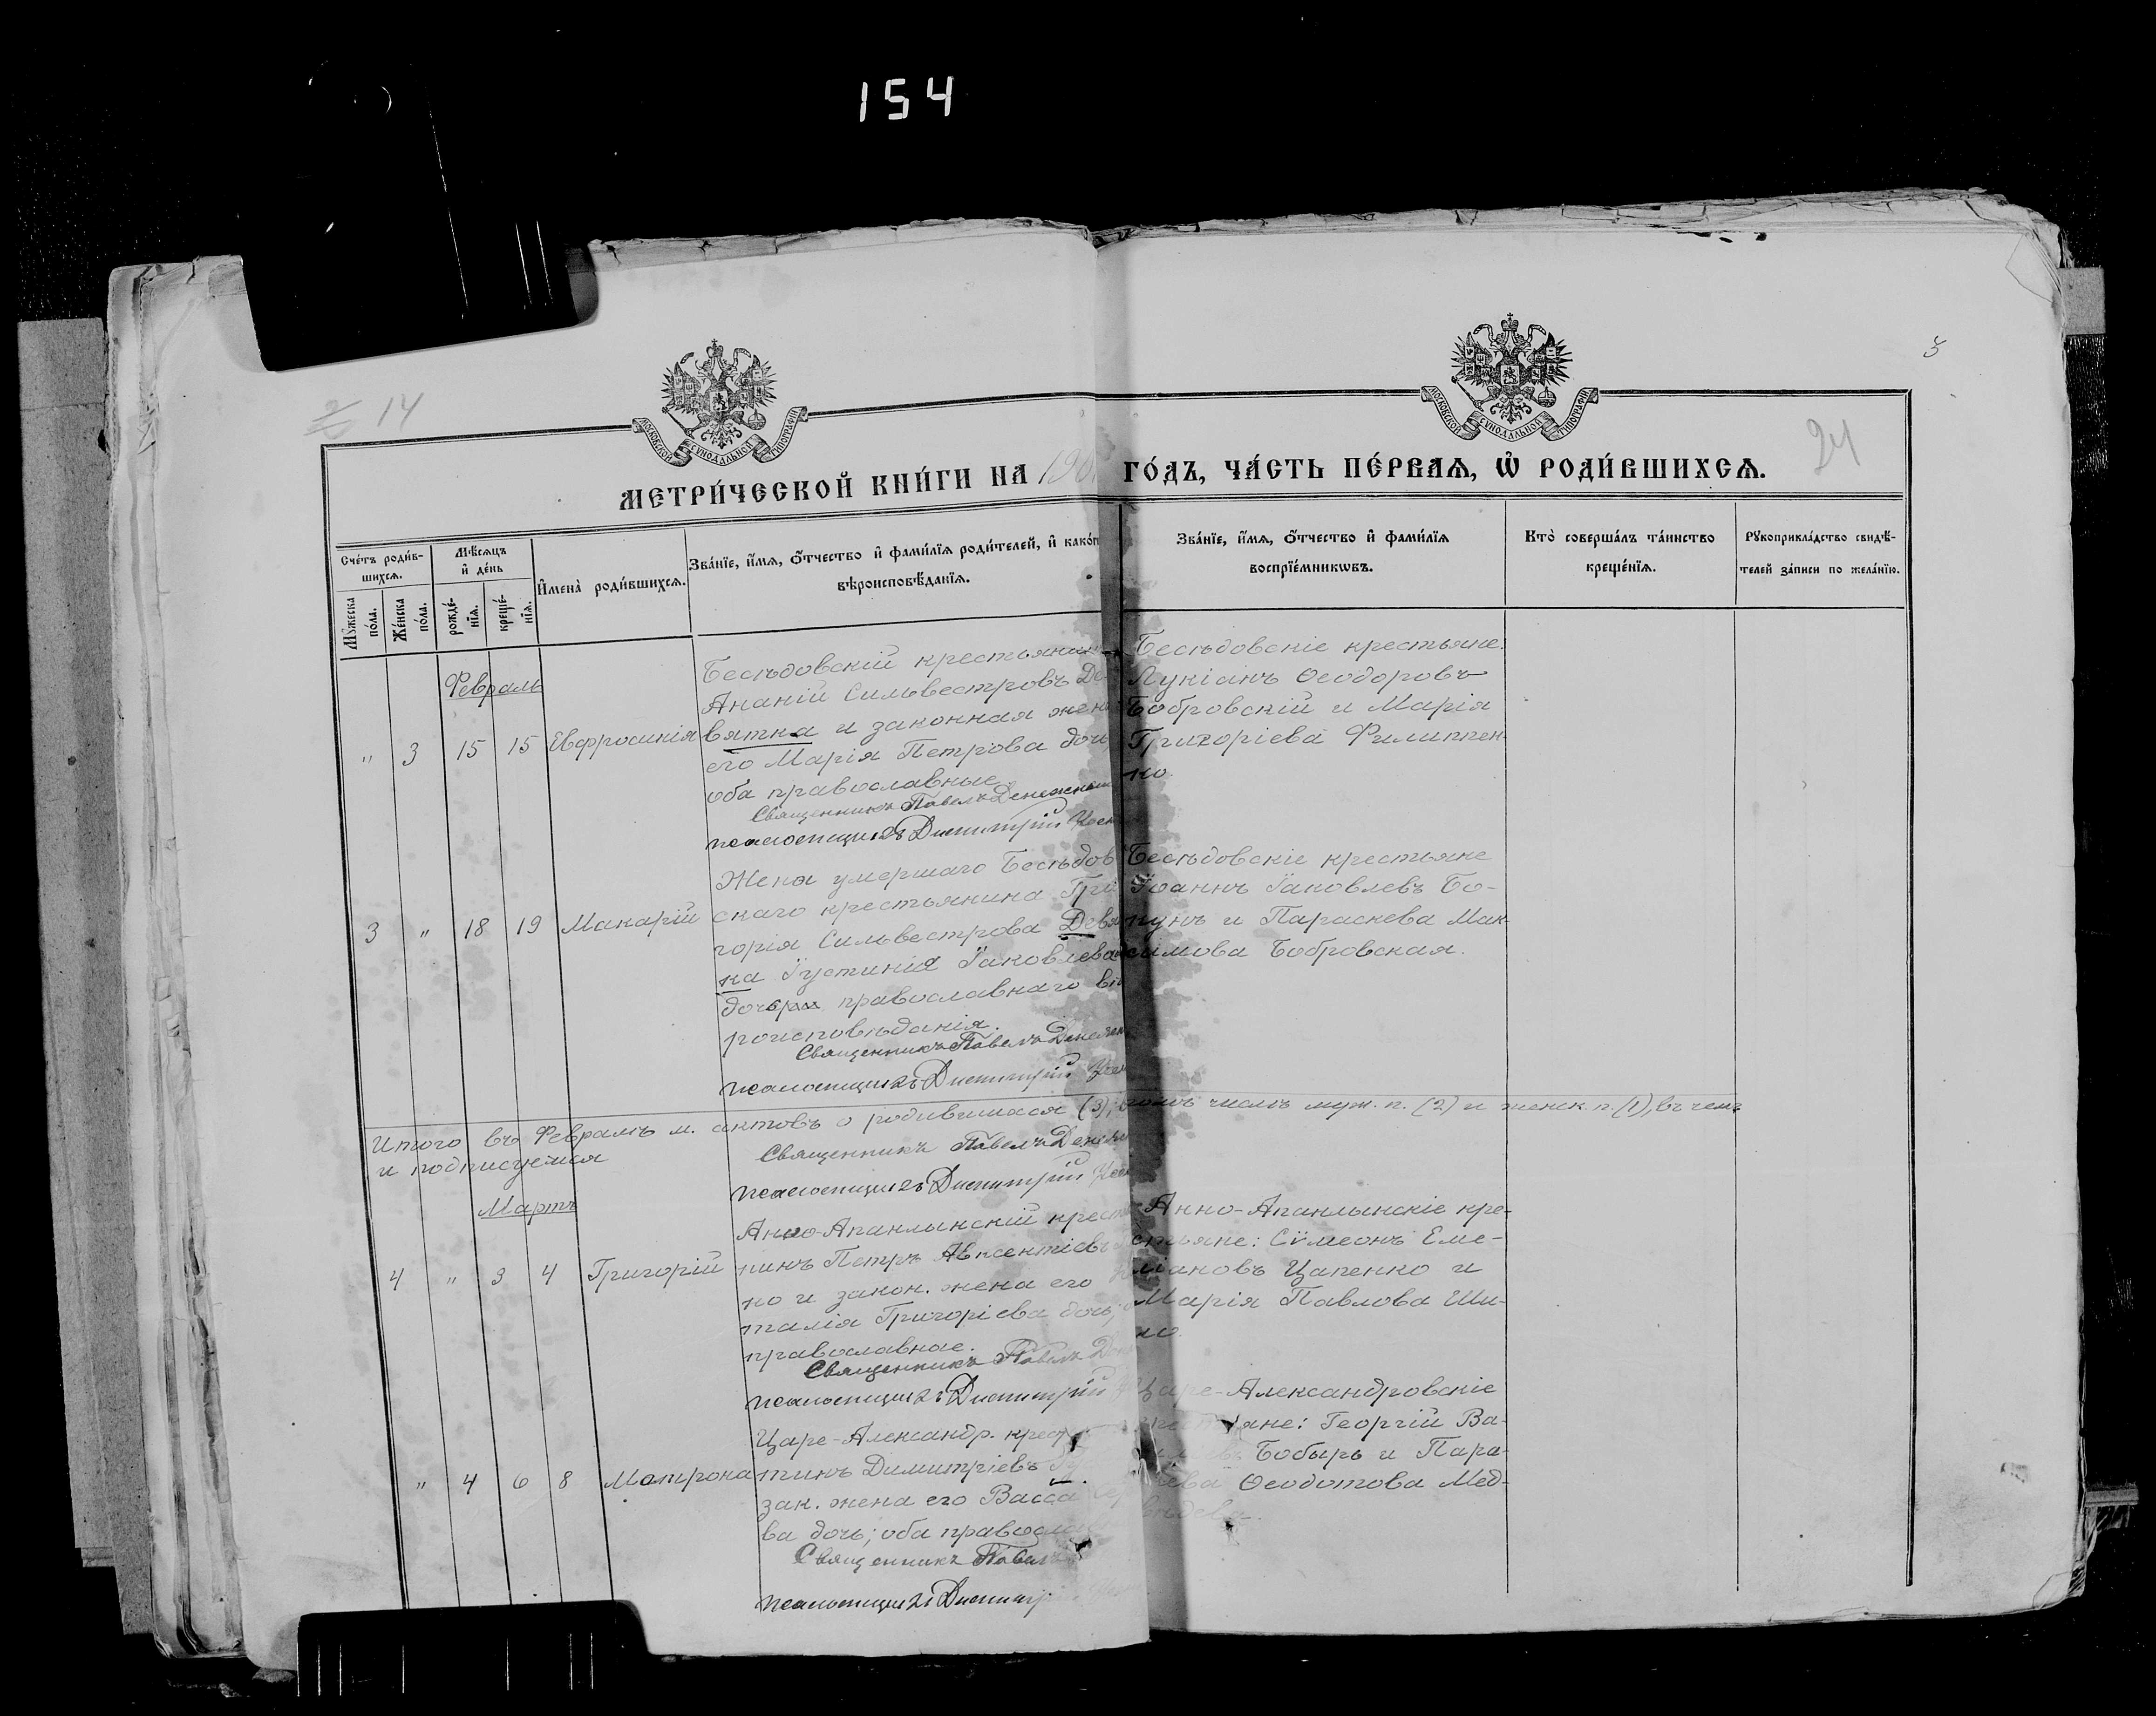 154
14
3
24
МОСКОВСКОЙ СѴНОДАЛЬНОЙ ТИПОГРАФІИ
МОСКОВСКОЙ СѴНОДАЛЬНОЙ ТИПОГРАФІИ
МЕТРИ́ЧЕСКОЙ КНИ́ГИ НА 190 ГО́ДЪ, ЧА́СТЬ ПЕ́РВАѦ, Ѡ РОДИ́ВШИХСѦ.
Сче́тъ роди́в-
шихсѧ.
Мѣ́сѧцъ
и де́нь
Имена̀ роди́вшихсѧ.
Зва́нїе, и́мѧ, о́тчество и фами́лїѧ роди́телей, и како́г
вѣроисповѣ́данїѧ.
Зва́нїе, и́мѧ, о́тчество и фами́лїѧ
воспрїе́мникѡвъ.
Кто̀ соверша́лъ та́инство
креще́нїѧ.
Рꙋкоприкла́дство свидѣ́-
телей за́писи по жела́нїю.
Мꙋ́жеска
по́ла.
Же́нска
по́ла.
рожде́-
нїѧ.
креще́-
нїѧ.
Февраль
" 3 15 15 Евфросинія
Бесѣдовскій крестьянин
Ананій Сильвестровъ Де-
вятка и законная жена
его Марія Петрова дочь,
оба православные.
Священникъ Павелъ
псаломщикъ Димитрій
Бесѣдовскіе крестьяне:
Лукіанъ Ѳеодоровъ
Бобровскій и Марія
Григоріева Филиппен-
ко.
3 " 18 19 Макарій
Жена умершаго Бесѣдов
скаго крестьянина Гри
горія Сильвестрова Девя
ка Іустинія Іаковлева
дочь православнаго вѣ
роисповѣданія.
Священникъ Павелъ
псаломщикъ Димитрій
Бесѣдовскіе крестьяне
Іоаннъ Іаковлевъ Бо-
гунъ и Параскева Мак-
симова Бобровская.
Итого въ Февралѣ м. актовъ о родившихся (3), томъ числѣ муж. п. (2) и женск. п. (1), въ чемъ
и подписуемся
Священникъ Павелъ
псаломщикъ Димитрій
Мартъ
4 " 3 4 Григорій
Анно-Апанлынскій крест
нинъ Петръ Авксентіевъ
ко и закон. жена его
талія Григоріева дочь;
православные.
Священникъ Павелъ
псаломщикъ Димитрій
Анно-Апанлынскіе кре-
стьяне: Сѵмеонъ Еме-
ліановъ Цапенко и
Марія Павлова Ши-
ко.
" 4 6 8 Матрона
Царе-Александр. крест
тинъ Димитріевъ
зак. жена его Васса
ва дочь; оба православ
Священникъ Павелъ
псаломщикъ Димитр
Царе-Александровскіе
крестьяне: Георгій Ва-
Бобырь и Пара-
скева Ѳеодотова Мед-
вѣдева.